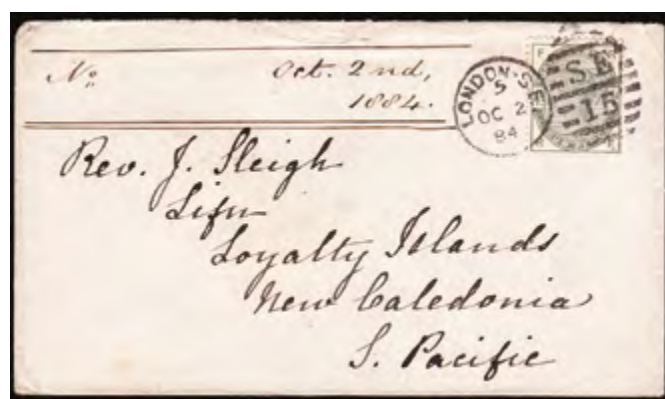 No Oct. 2nd,
1884.
LONDON·S.E.
5
OC 2
84
S.E
15
Rev. J. Sleigh
Lifu
Loyalty Islands
New Caledonia
S. Pacific